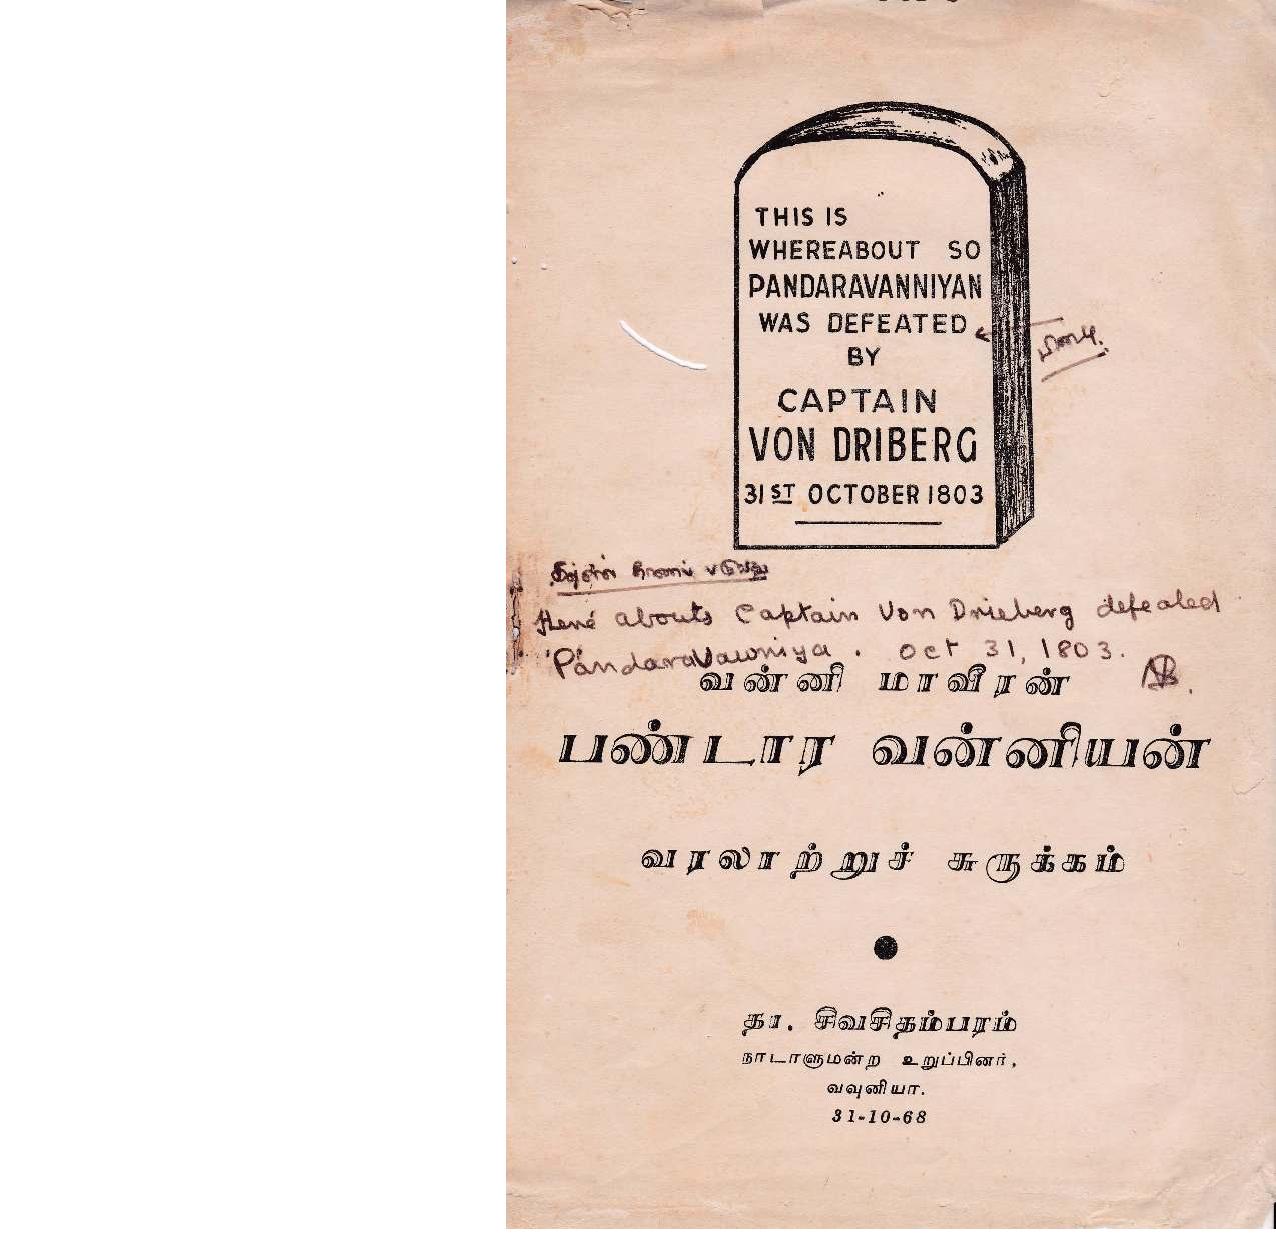 THIS IS
WHEREABOUT SO
PANDARAVANNIYAN
WAS DEFEATED
BY
CAPTAIN
VON DRIBERG
31ST OCTOBER 1803
Hené abouts Captain Von Drieberg defealed
Pandaravawniya. Oct 31, 1803.
வன்னி மாவீரன்
பண்டார வன்னியன்
வரலாற்றுச் சுருக்கம்
தா. சிவசிதம்பரம்
நாடாளுமன்ற உறுப்பினர்,
வவுனியா.
31-10-68